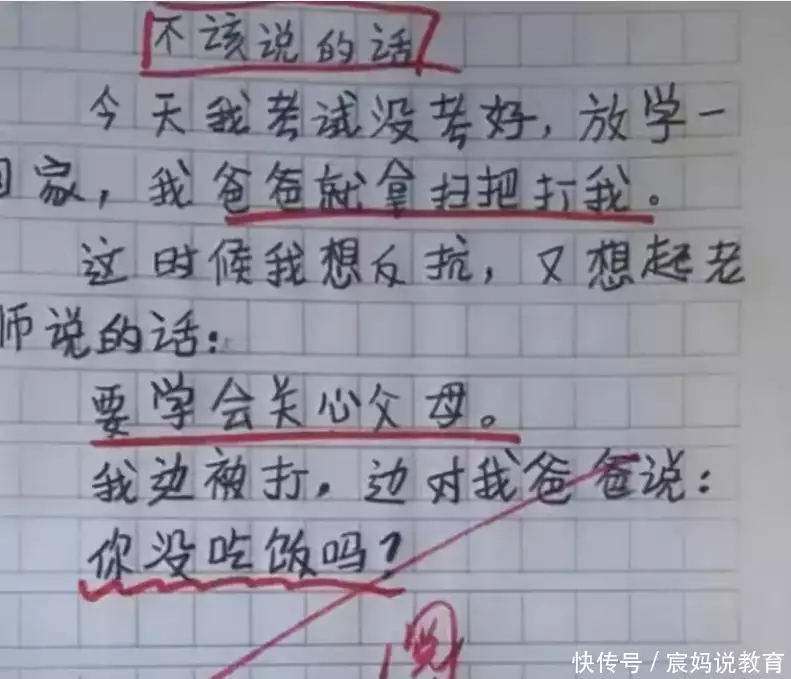 不该说的话
今天我考试没考好，放学一
回家，我爸爸就拿扫把打我。
这时候我想反抗，又想起老
师说的话：
要学会关心父母。
我边被打，边对我爸爸说：
你没吃饭吗？
快传号／宸妈说教育